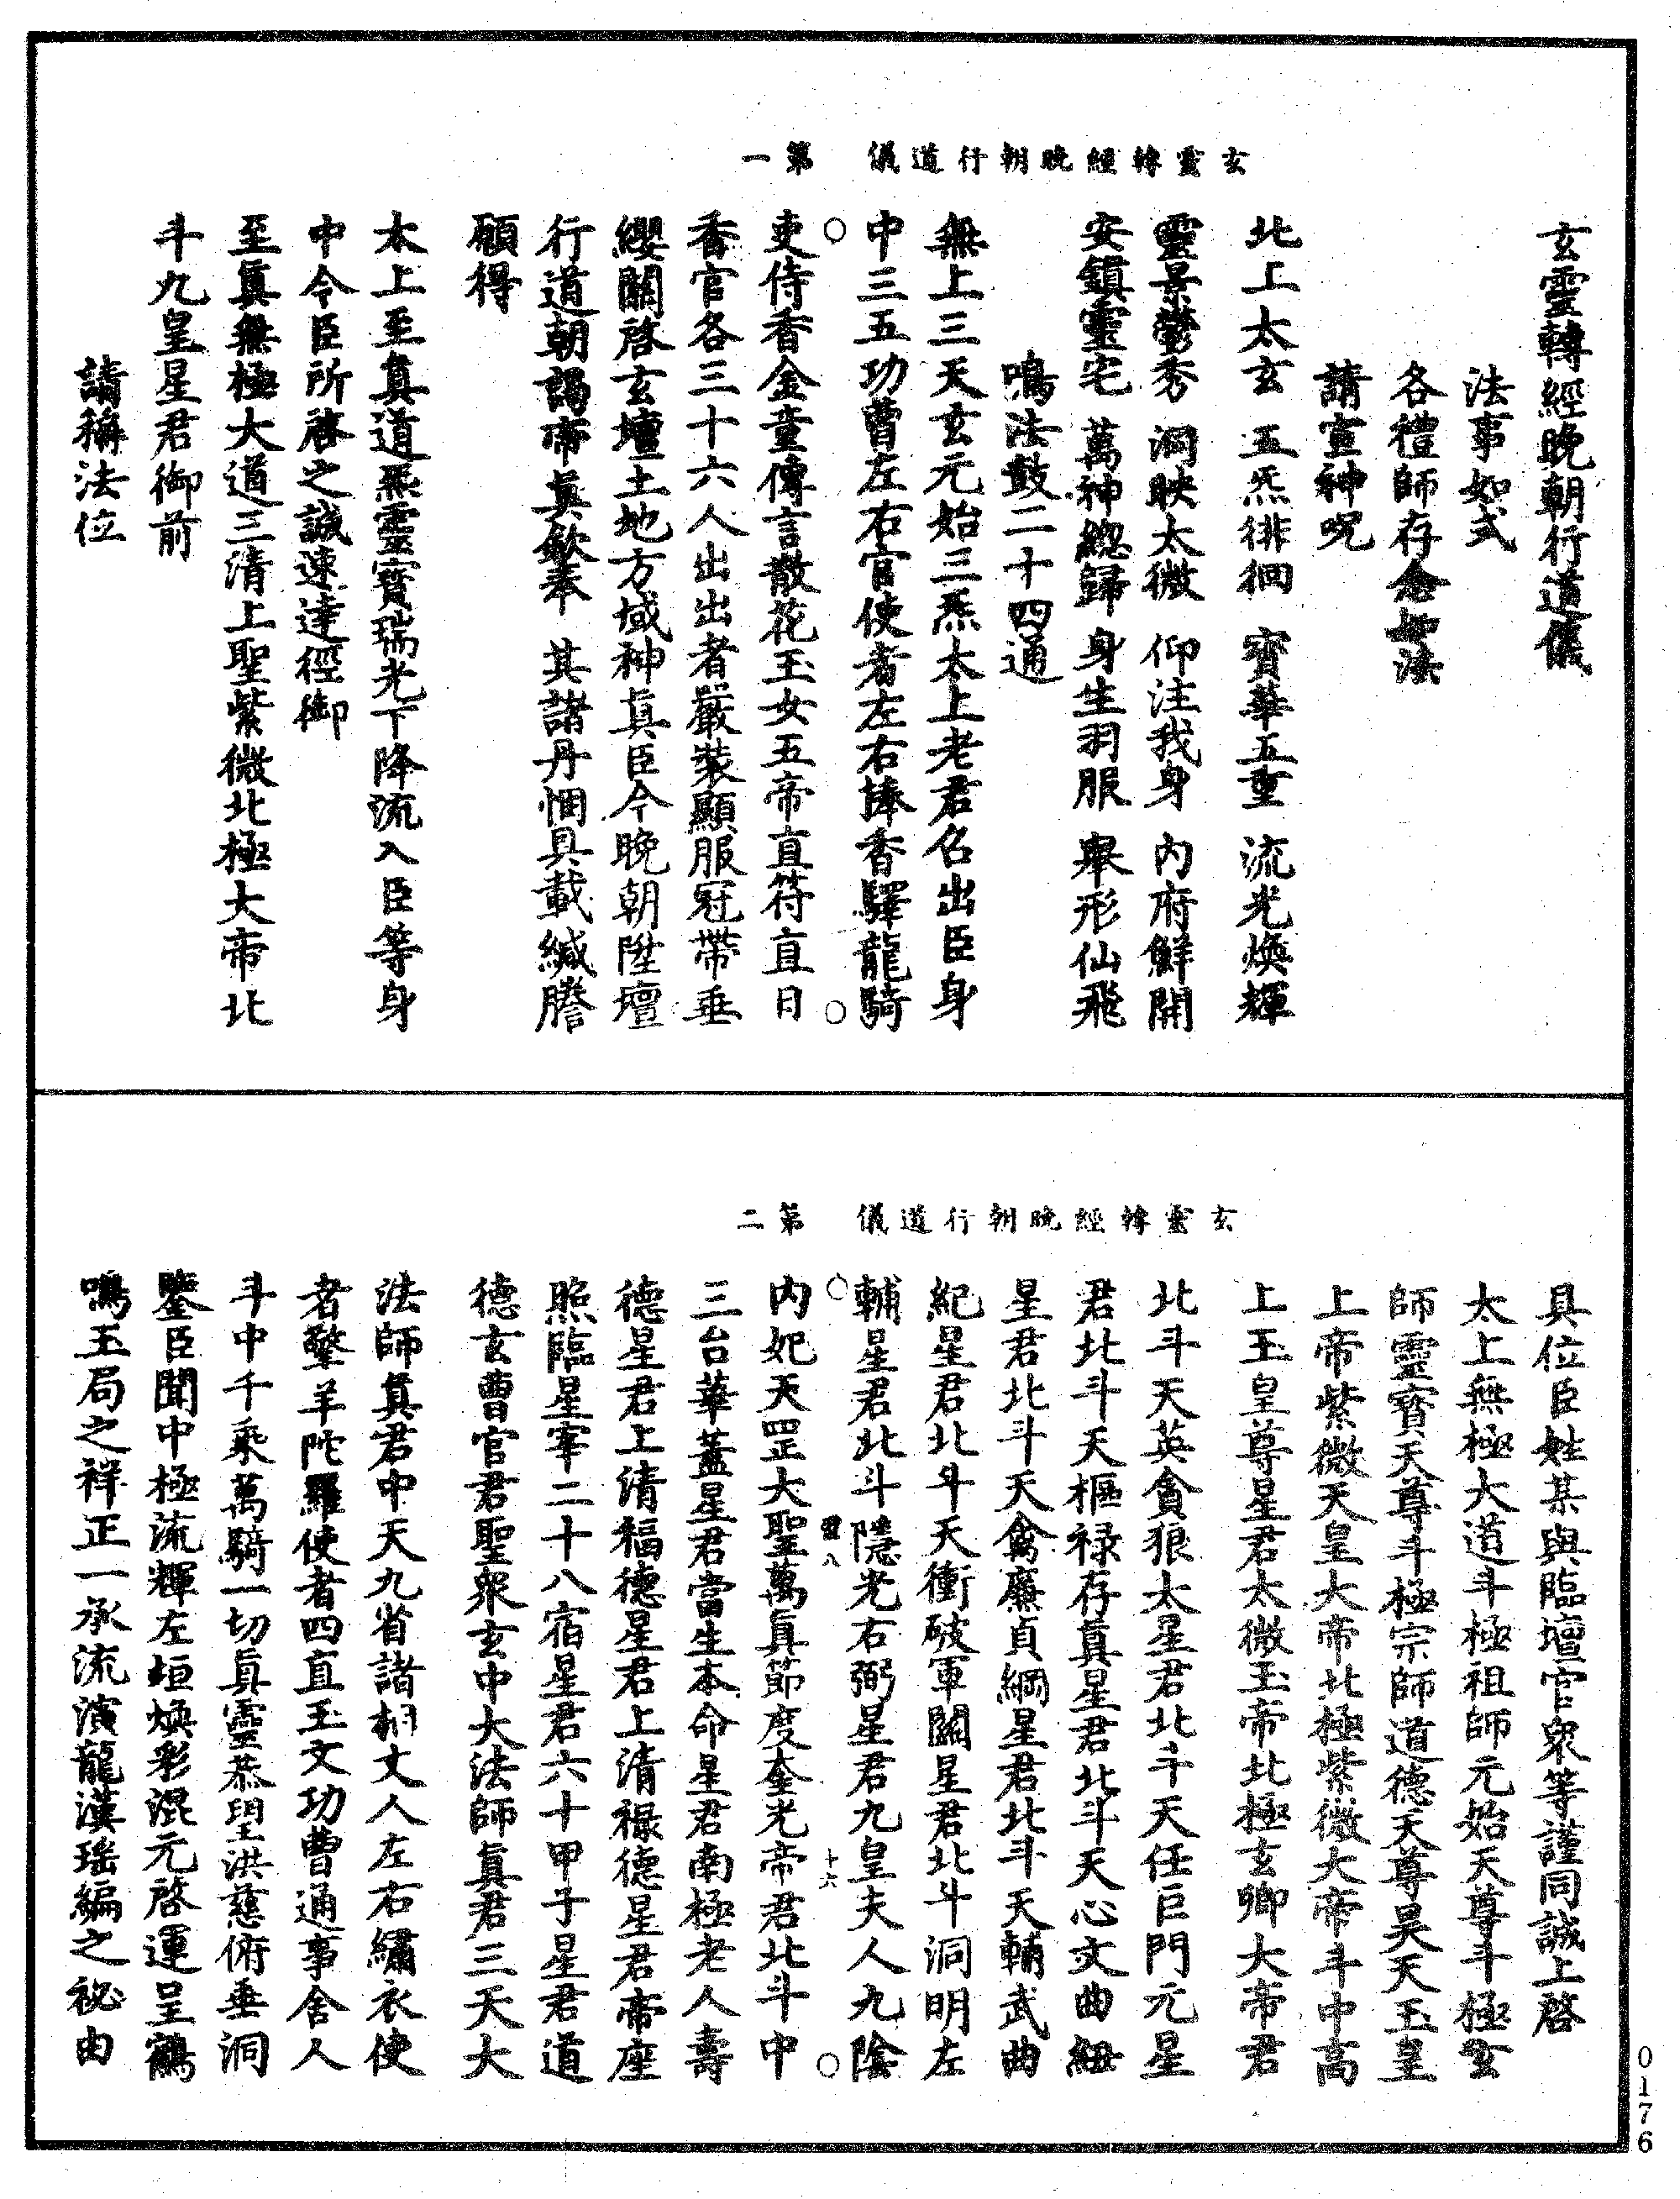 玄靈轉經晚朝行道儀　第一
玄靈轉經晚朝行道儀
法事如式
各禮師存念如法
請宣神呪
北上太玄　五炁徘徊　寶華五重　流光煥輝
靈景鬱秀　洞映太微　仰注我身　內府鮮開
安鎮靈宅　萬神總歸　身生羽服　舉形仙飛
鳴法鼓二十四通
無上三天玄元始三炁太上老君召出臣身
中三五功曹左右官使者左右捧香驛龍騎
吏侍香金童傳言散花玉女五帝直符直日
香官各三十六人出出者嚴裝顯服冠帶垂
纓關啓玄壇土地方域神真臣今晚朝陞壇
行道朝謁帝真歙奉　其諸丹悃具載緘謄
願得
太上至真道炁靈寶瑞光下降流入臣等身
中令臣所啓之誠速達徑御
至真無極大道三清上聖紫微北極大帝北
斗九皇星君御前
請稱法位
玄靈轉經晚朝行道儀　第二
具位臣姓某與臨壇官眾等謹同誠上啓
太上無極大道斗極祖師元始天尊斗極玄
師靈寶天尊斗極宗師道德天尊昊天玉皇
上帝紫微天皇大帝北極紫微大帝斗中高
上玉皇尊星君太微玉帝北極玄卿大帝君
北斗天英貪狼太星君北斗天任巨門元星
君北斗天樞祿存真星君北斗天心文曲紐
星君北斗天禽廉貞綱星君北斗天輔武曲
紀星君北斗天衝破軍關星君北斗洞明左
輔星君北斗隱光右弼星君九皇夫人九陰
八
十六
內妃天罡大聖萬真節度奎光帝君北斗中
三台華蓋星君當生本命星君南極老人壽
德星君上清福德星君上清祿德星君帝座
照臨星宰二十八宿星君六十甲子星君道
德玄曹官君聖眾玄中大法師真君三天大
法師真君中天九省諸相文人左右繡衣使
者擎羊陀羅使者四直玉文功曹通事舍人
斗中千乘萬騎一切真靈恭望洪慈俯垂洞
鑒臣聞中極流輝左垣煥彩混元啓運呈鶴
鳴玉局之祥正一承流演龍漢瑤編之祕由
0176